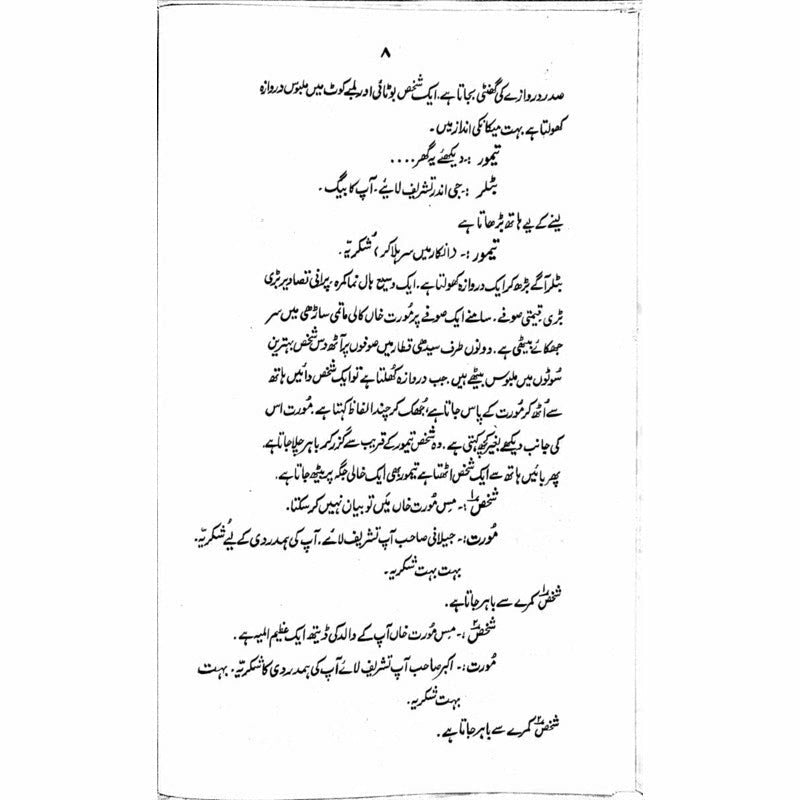 ۸
صدر دروازے کی گھنٹی بجاتا ہے۔ ایک شخص بوٹائی اور لمبے کوٹ میں ملبوس دروازہ
کھولتا ہے بہت میکانکی انداز میں۔
تیمور :۔ دیکھئے یہ گھر ....
بٹلر :۔ جی اندر تشریف لائیے۔ آپ کا بیگ۔
لینے کے لیے ہاتھ بڑھاتا ہے
تیمور :۔ (انکار میں سر ہلا کر) شُکریہّ۔
بٹلر آگے بڑھ کر ایک دروازہ کھولتا ہے۔ ایک وسیع ہال نما کمرہ۔ پرانی تصاویر بڑی
بڑی قیمتی صوفے۔ سامنے ایک صوفے پر مُورت خاں کالی ماتمی ساڑھی میں سر
جھکائے بیٹھی ہے۔ دونوں طرف سیدھی قطار میں صوفوں پر آٹھ دس شخص بہترین
سُوٹوں میں ملبوس بیٹھے ہیں۔ جب دروازہ کُھلتا ہے تو ایک شخص دائیں ہاتھ
سے اُٹھ کر مُورت کے پاس جاتا ہے، جُھک کر چند الفاظ کہتا ہے۔ مُورت اس
کی جانب دیکھے بغیر کچھ کہتی ہے۔ وہ شخص تیمور کے قریب سے گزر کر باہر چلا جاتا ہے۔
پھر بائیں ہاتھ سے ایک شخص اٹھتا ہے تیمور بھی ایک خالی جگہ پر بیٹھ جاتا ہے۔
شخص ۱ :۔ مِس مُورت خاں میَں تو بیان نہیں کر سکتا۔
مُورت :۔ جیلانی صاحب آپ تشریف لائے۔ آپ کی ہمدردی کے لیے شُکریہّ۔
بہت بہت شکریہ۔
شخص ۱ کمرے سے باہر جاتا ہے۔
شخص ۲ :۔ مِس مُورت خاں آپ کے والد کی ڈیتھ ایک عظیم المیہ ہے۔
مُورت :۔ اکبر صاحب آپ تشریف لائے آپ کی ہمدردی کا شکریہّ۔ بہت
بہت شکریہ۔
شخص ۲ کمرے سے باہر جاتا ہے۔